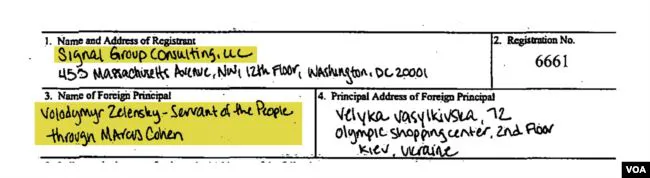 1. Name and Address of Registrant
2. Registration No.
Signal Group Consulting, LLC
453 Massachusetts Avenue, NW, 12th Floor, Washington, DC 20001
6661
3. Name of Foreign Principal
4. Principal Address of Foreign Principal
Volodymyr Zelensky - Servant of the People
through Marcus Cohen
Velyka Vasylkivska, 72
Olympic shopping center, 2nd Floor
Kiev, Ukraine
VOA